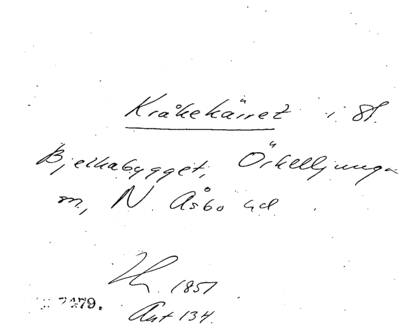 Kråkekärret i 81.
Bjelkabygget, Örkelljunga
m, N. Åsbo hd.
1857
7479.
Ant 134.